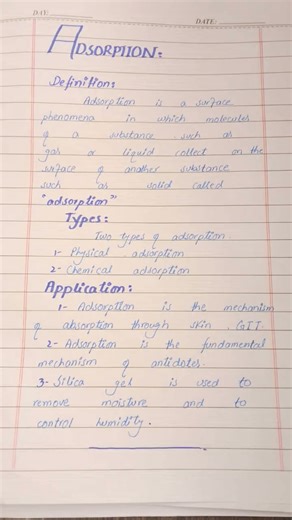 DAY:
DATE:
ADSORPTION:
Definition:
Adsorption is a surface
phenomena in which molecules
of a substance such as
gas or liquid collect on the
surface of another substance
such as solid called
"adsorption"
Types:
Two types of adsorption
1- Physical adsorption
2- Chemical adsorption
Application:
1- Adsorption is the mechanism
of absorption through skin
2- Adsorption is the fundamental
mechanism of antidotes.
3- Silica gel is used to
remove moisture and to
control humidity.